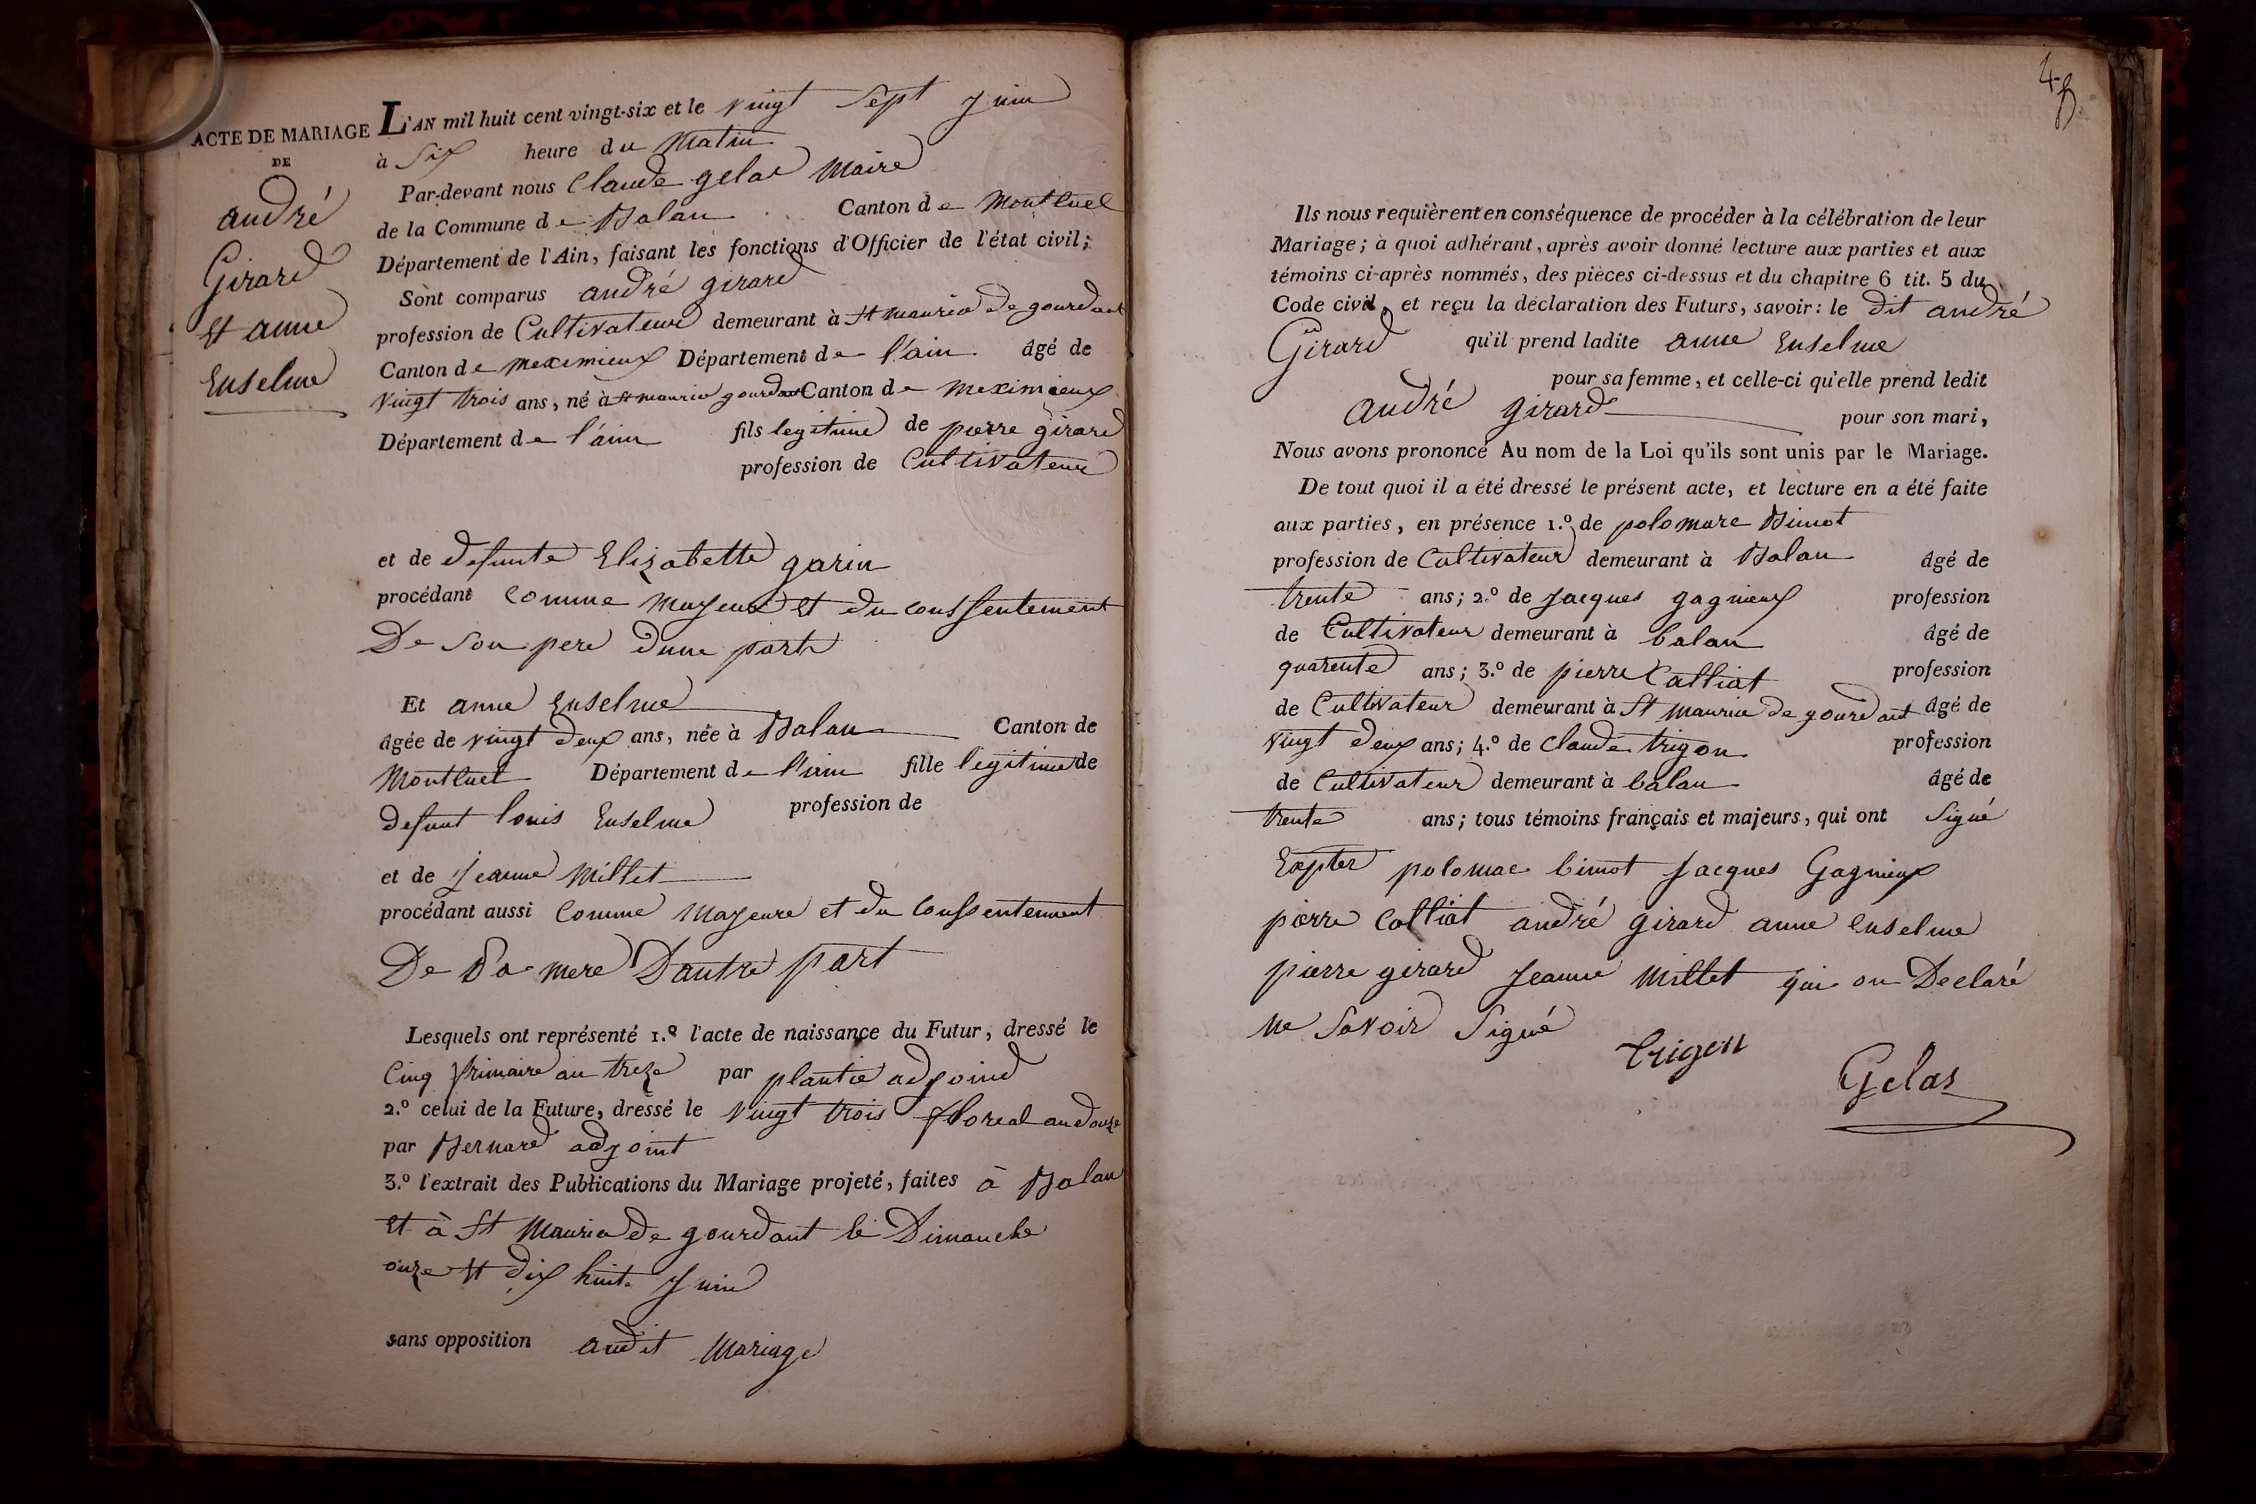 ACTE DE MARIAGE
DE
andré
Girard
Et anne
Enselme
L'AN mil huit cent vingt-six et le vingt Sept Juin
à Six heure du Matin
Par-devant nous Claude gelas Maire
de la Commune de Balan Canton de Montluel
Département de l'Ain, faisant les fonctions d'Officier de l'état civil;
Sont comparus andré girard
profession de Cultivateur demeurant à St maurice De gourdant
Canton de meximieux Département de l'ain âgé de
Vingt trois ans, né à St maurice gourdant Canton de meximieux
Département de l'ain fils legitime de pierre girard
profession de Cultivateur
et de defunte Elizabette garin
procédant Comme Mayeur et du conssentement
De Son pere dune part
Et anne Enselme
âgée de vingt deux ans, née à Balan Canton de
Montluel Département de l'ain fille legitime de
defunt louis Enselme profession de
et de Jeanne Millet
procédant aussi Comme Mayeure et du Conssentement
De Sa mere Dautre part
Lesquels ont représenté 1.º l'acte de naissance du Futur, dressé le
Cinq frimaire an treze par plantie adjoind
2.º celui de la Future, dressé le vingt trois floreal an douze
par Bernard adjoint
3.º l'extrait des Publications du Mariage projeté, faites à Balan
et à St Maurice de gourdant le Dimanche
onze et dix huit Juin
sans opposition audit Mariage
48
Ils nous requièrent en conséquence de procéder à la célébration de leur
Mariage; à quoi adhérant, après avoir donné lecture aux parties et aux
témoins ci-après nommés, des pièces ci-dessus et du chapitre 6 tit. 5 du
Code civil, et reçu la déclaration des Futurs, savoir: le dit andré
Girard qu'il prend ladite anne Enselme
pour sa femme, et celle-ci qu'elle prend ledit
andré girard pour son mari,
Nous avons prononcé Au nom de la Loi qu'ils sont unis par le Mariage.
De tout quoi il a été dressé le présent acte, et lecture en a été faite
aux parties, en présence 1.º de polomare Bimot
profession de Cultivateur demeurant à Balan âgé de
trente ans; 2.º de Jacques gagnieux profession
de Cultivateur demeurant à balan âgé de
quarente ans; 3.º de pierre Calliat profession
de Cultivateur demeurant à St Maurice de gourdant âgé de
Vingt deux ans; 4.º de Claude trigon profession
de Cultivateur demeurant à balan âgé de
trente ans; tous témoins français et majeurs, qui ont Signé
Expter polomac bimot Jacques Gagnieux
pierre Calliat andré girard anne enselme
pierre girard Jeanne Millet qui on Declaré
ne Savoir Signé
trigon
Gelas